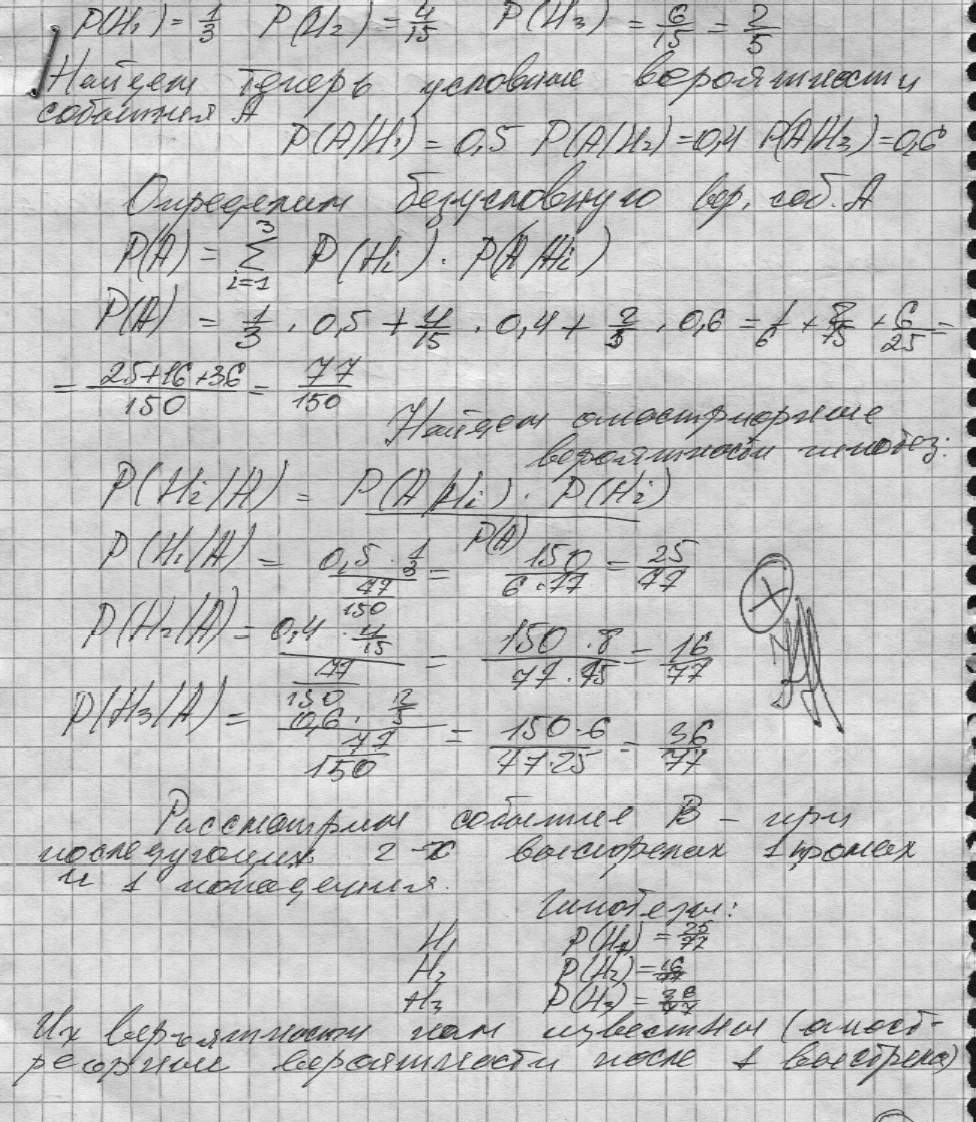 P(H₁) = 1/3 P(H₂) = 4/15 P(H₃) = 6/15 = 2/5
Найдем теперь условные вероятности
события A
P(A/H₁) = 0,5 P(A/H₂) = 0,4 P(A/H₃) = 0,6
Определим безусловную вер. соб. A
P(A) = Σ_{i=1}^{3} P(Hᵢ) · P(A/Hᵢ)
P(A) = 1/3 · 0,5 + 4/15 · 0,4 + 2/5 · 0,6 = 1/6 + 8/75 + 6/25 =
= (25+16+36)/150 = 77/150
Найдем апостриорные
вероятности гипотез:
P(Hᵢ/A) = (P(A/Hᵢ) · P(Hᵢ))/P(A)
P(H₁/A) = (0,5 · 1/3)/(77/150) = 150/(6·77) = 25/77
P(H₂/A) = (0,4 · 4/15)/(77/150) = (150·8)/(77·75) = 16/77
P(H₃/A) = (0,6 · 2/5)/(77/150) = (150·6)/(77·25) = 36/77
Рассмотрим событие B – при
последующих 2-х выстрелах 1 промах
и 1 попадения.
Гипотезы:
H₁ P(H₁) = 25/77
H₂ P(H₂) = 16/77
H₃ P(H₃) = 36/77
Их вероятности нам известны (апост-
реорные вероятности после 1 выстрела)